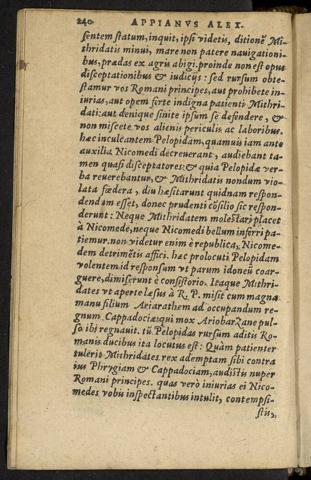 240 APPIANVS ALEX.
sentem statum, inquit, ipsi videtis, ditionē Mi-
thridatis minui, mare non patere nauigationi-
bus, prædas ex agris abigi. proinde non est opus
disceptationibus & iudicijs: sed rursum obte-
stamur vos Romani principes, aut prohibete in-
iurias, aut opem ferte indigna patienti Mithri-
dati: aut denique sinite ipsum se defendere, &
non miscete vos alienis periculis ac laboribus.
hæc inculcantem Pelopidam, quamuis iam ante
auxilia Nicomedi decreuerant, audiebant ta-
men quasi disceptatores: & quia Pelopidæ ver-
ba reuerebantur, & Mithridatis nondum vio-
lata fœdera, diu hæsitarunt quidnam respon-
dendum esset, donec prudenti cōsilio sic respon-
derunt: Neque Mithridatem molestari placet
à Nicomede, neque Nicomedi bellum inferri pa-
tiemur. non videtur enim è republica, Nicome-
dem detrimētis affici. hæc prolocuti Pelopidam
volentem id responsum vt parum idoneū coar-
guere, dimiserunt è consistorio. Itaque Mithri-
dates vt aperte læsus à R. P. misit cum magna
manu filium Aeiarathem ad occupandum re-
gnum Cappadociæ: qui mox Ariobarzane pul-
so ibi regnauit. tū Pelopidas rursum aditis Ro-
manis ducibus ita locutus est: Quàm patienter
tulerit Mithridates rex ademptam sibi contra
ius Phrygiam & Cappadociam, audistis nuper
Romani principes. quas verò iniurias ei Nico-
medes vobis inspectantibus intulit, contempsi-
stis,